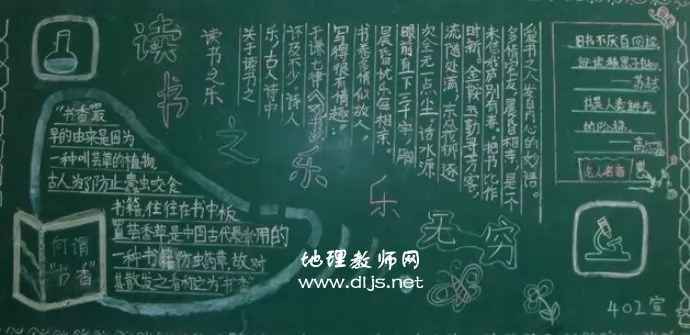 读书之乐乐无穷
读书之乐
关于读书之
乐,古人诗中
不少。诗人
于谦七律《观书》
写得很有情趣:
书卷多情似故人,
晨昏忧乐每相亲。
眼前直下三千字,胸
次全无一点尘。活水源
流随处满,东风花柳逐
时新。金鞍玉勒寻芳客,
未信我庐别有春。把书比作
多情 友,晨昏相亲,是一个
爱书之人发自内心的妙语。
旧书不厌百回读,
——苏轼
书是人类进步
的阶梯。
——高尔基
名人名言
“书香”最
早的由来是因为
一种叫芸草的植物,
古人为了防止蠹虫咬食
书籍,往往在书中板
置芸香草是中国古代最常用的
一种书籍防虫药草,故对
其散发之香称之为“书香”
何谓
“书香”
402宣
地理教师网
www.dljs.net